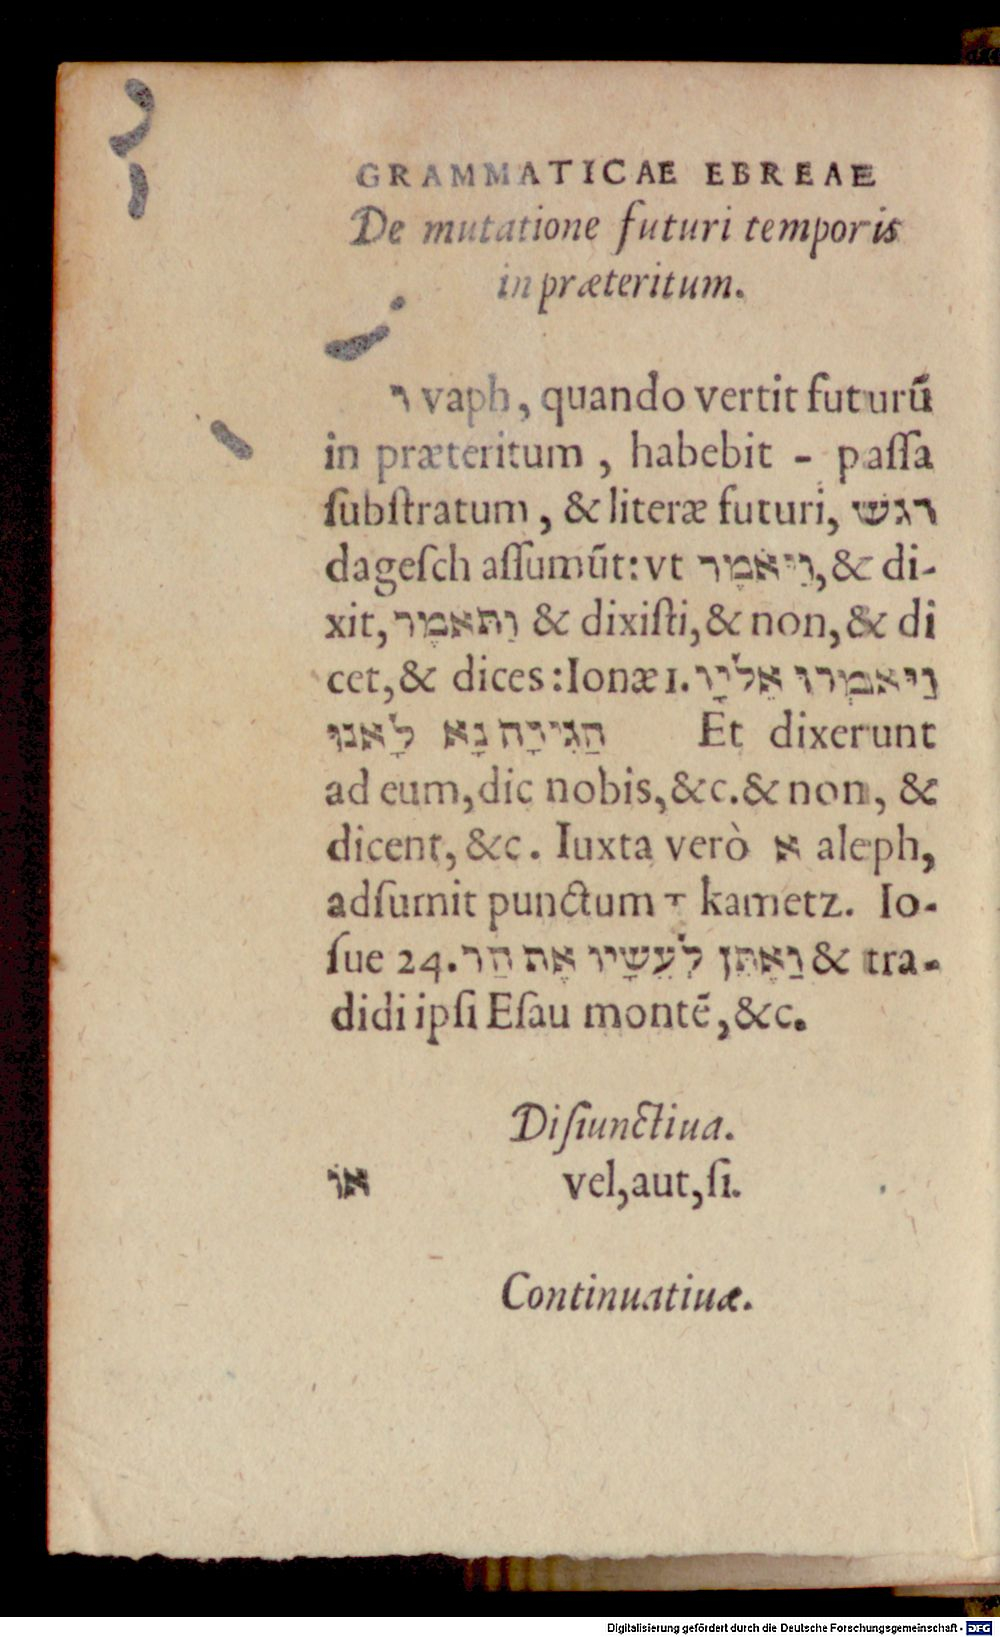 GRAMMATICAE EBREAE
De mutatione futuri temporis
in præteritum.
ו vaph, quando vertit futurũ
in præteritum, habebit - passa
ſubſtratum, & literæ futuri, דגש
dageſch aſſumũt: vt וַיּאֹמֶר, & di-
xit, וַתּאֹמֶר & dixiſti, & non, & di
cet, & dices: Ionæ 1. וַיּאֹמְרוּ אֵלָיו
הַגִּידָה נָא לָאנוּ Et dixerunt
ad eum, dic nobis, &c. & non, &
dicent, &c. Iuxta verò א aleph,
adſumit punctum ָ kametz. Io-
ſue 24. וַאֶתֵּן לְעֵשָׂיו אֶת הַר & tra-
didi ipſi Eſau montẽ, &c.
Diſiunctiua.
אוֹ vel, aut, ſi.
Continuatiuæ.
Digitalisierung gefördert durch die Deutsche Forschungsgemeinschaft - DFG